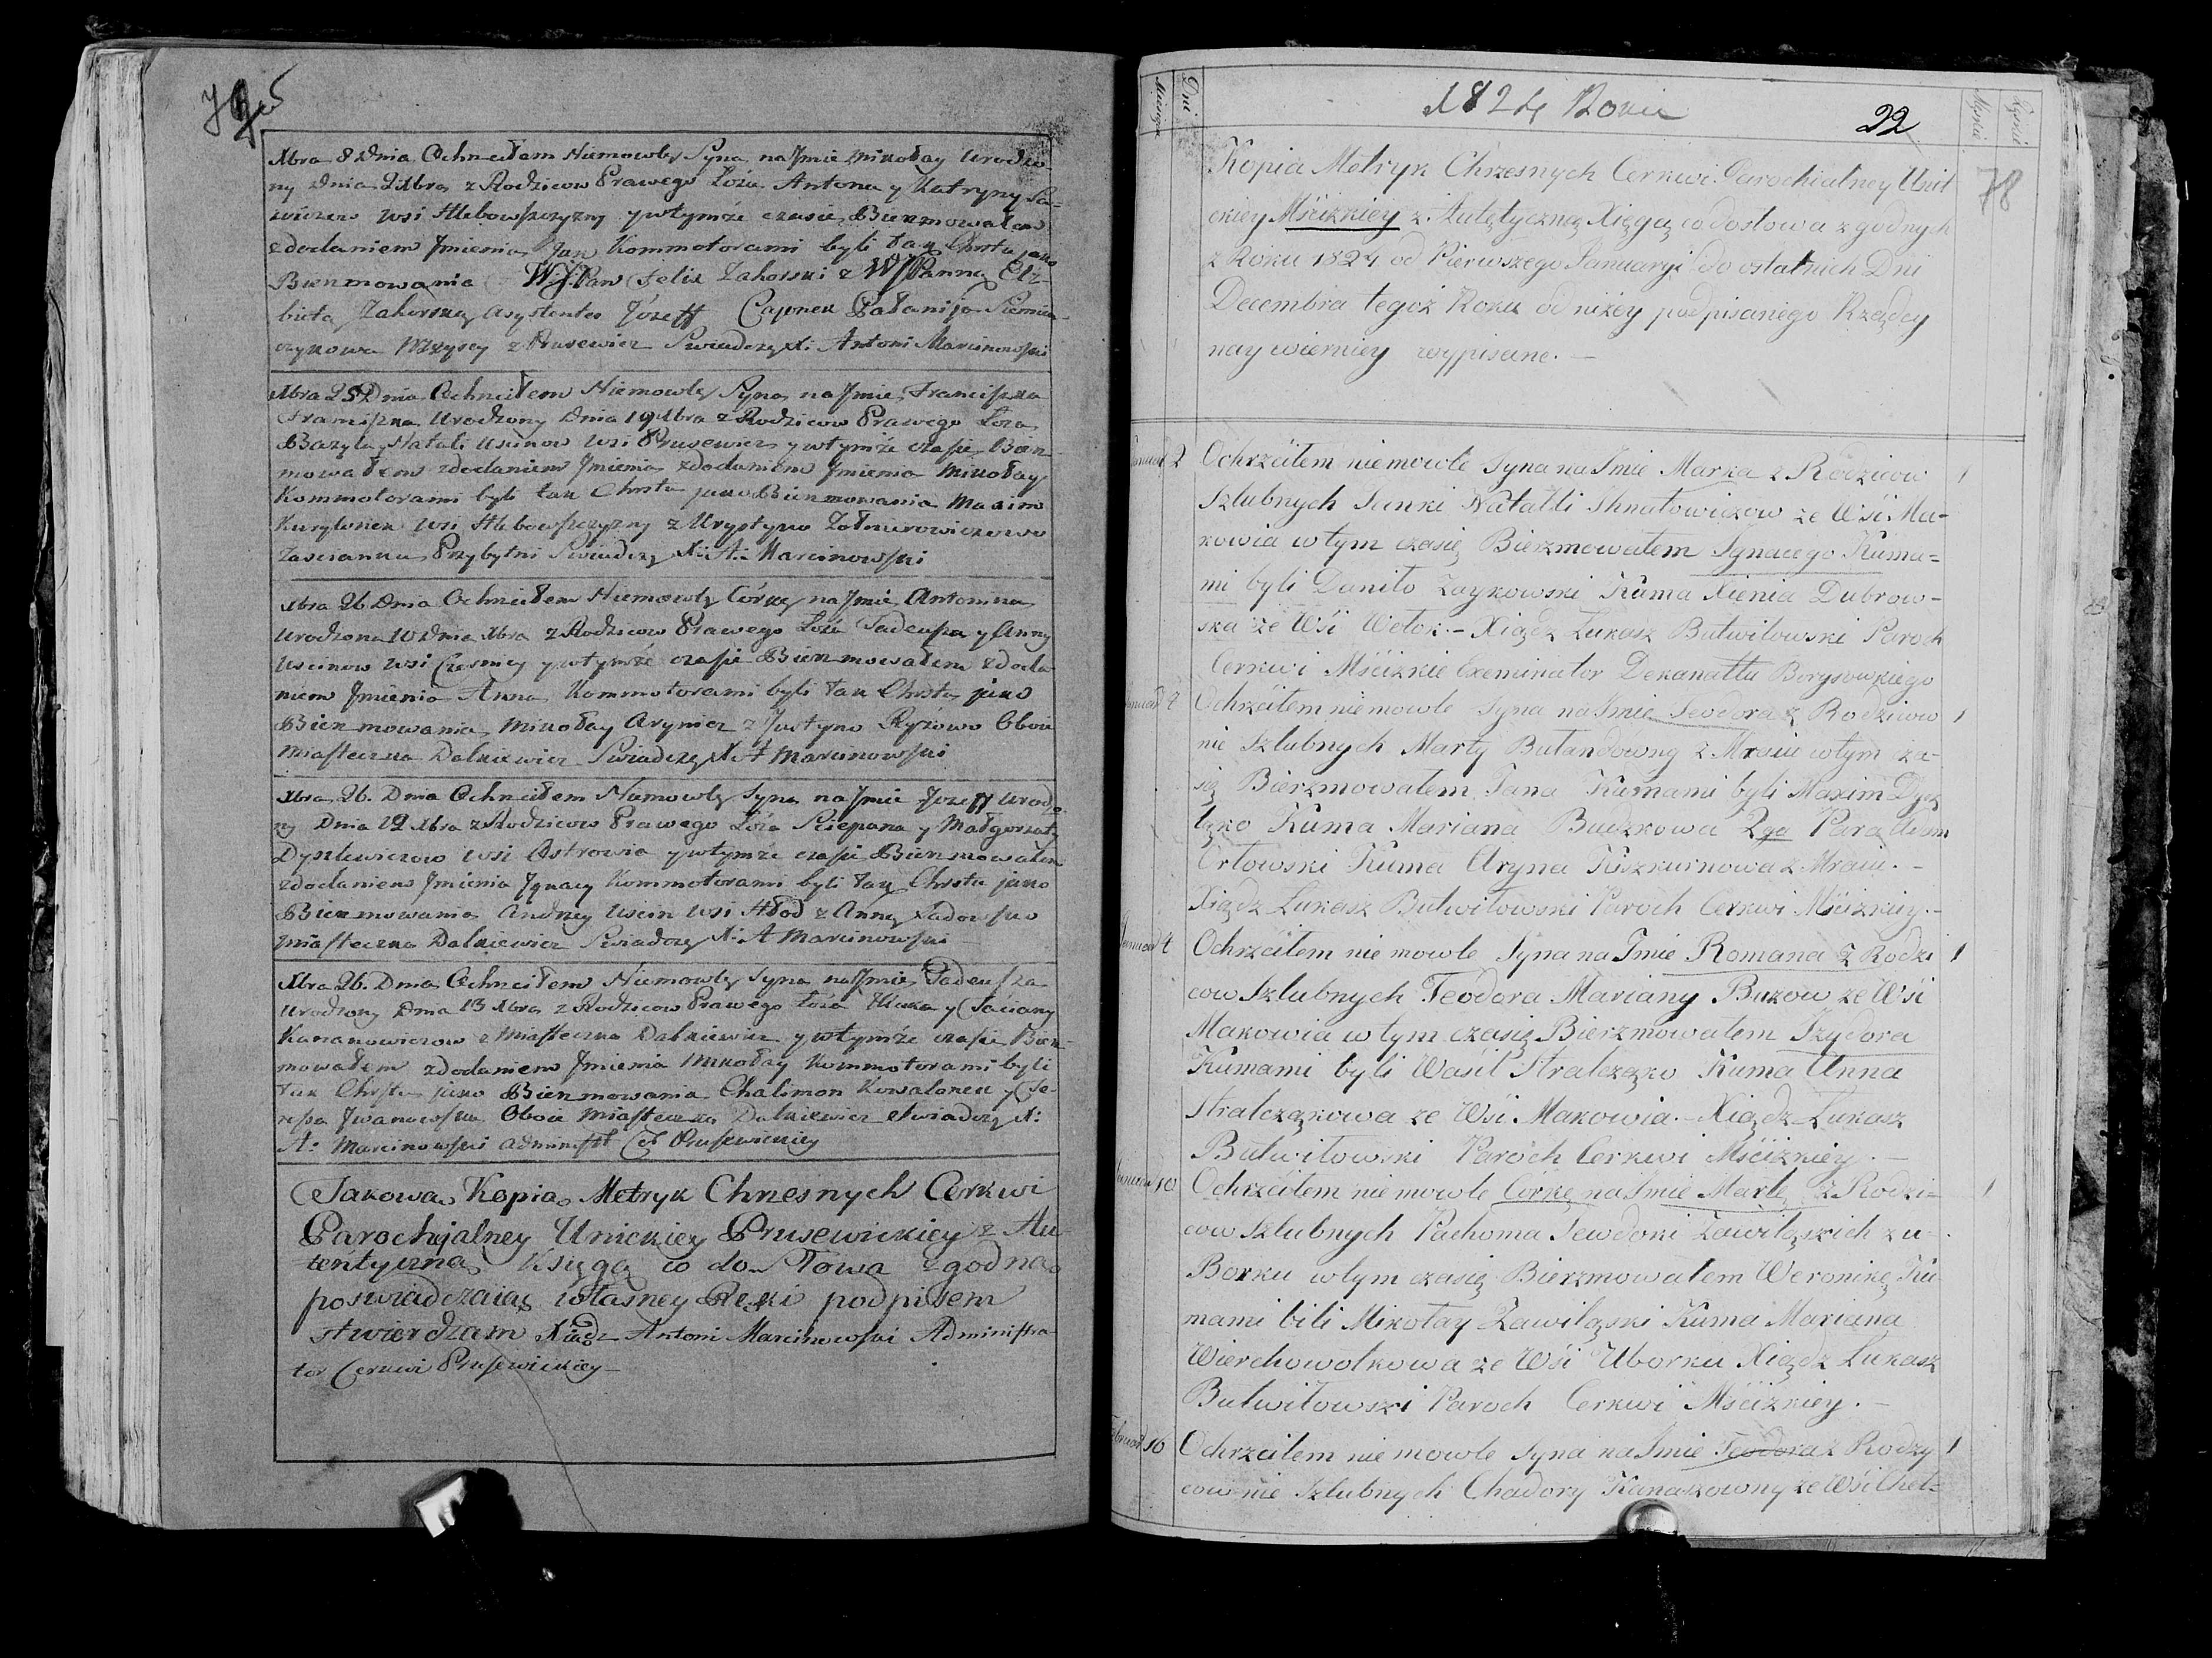 Xbra 8 Dnia Ochrzciłem Niemowlę Syna na Jmie Mikołay Urodzo
ny Dnia 2 Xbra z Rodzicow Prawego Łoża Antona y Katryny Sa-
wiczew wsi Hlebowszczyzny y wtymże czasie Bierzmowałem
zdodaniem Jmienia Jan Kommotorami byli tak Chrztu jako
Bierzmowania WJPan Felix Zahorski z WJPanną Elż-
bietą Zahorską Asystentes Józeff Caponek Pałanija
czykowa Wszyscy z Prusewicz Swiadczę X: Antoni Marcinowski
Xbra 25 Dnia Ochrzciłem Niemowlę Syna na Jmie Franciszka
Franciszka Urodzony Dnia 19 Xbra z Rodzicow Prawego Łoża
Bazyla Natali Uscinow wsi Prusewicz y wtymże czasie Bierz-
mowałem zdodaniem Jmienia zdodaniem Jmienia Mikołay
Kommotorami byli tak Chrztu jako Bierzmowania Maxim
Kurylonek wsi Hlebowszczyzny z Krystyno Zołnierowiczowo
Zascianku Przybytni Swiadczę X: A: Marcinowski
Xbra 26 Dnia Ochrzciłem Niemowlę Córkę na Jmie Antonina
Urodzona 10 Dnia Xbra z Rodzicow Prawego Łoża Tadeusza y Anny
Uscinow wsi y wtymże czasie Bierzmowałem zdoda
niem Jmienia Anna Kommotorami byli tak Chrztu jako
Bierzmowania Mikołay Arynicz z Justyno Ryżowo Oboie
Miasteczka Dalkiewicz Swiadczę X: A Marcinowski
Xbra 26. Dnia Ochrzciłem Niemowlę Syna na Jmie Jozeff Urodzo
ny Dnia 12 Xbra z Rodzicow Prawego Łoża Sciepana y Małgorzaty
Dyszlewiczow wsi Ostrowia y wtymże czasie Bierzmowałem
zdodaniem Jmienia Jgnacy Kommotorami byli tak Chrztu jako
Bierzmowania Andrzey Uscin wsi Hłod z Anną Sadowsko
Miasteczka Dalkiewicz Swiadczę X: A Marcinowski
Xbra 26. Dnia Ochrzciłem Niemowlę Syna na Jmie Tadeusza
Urodzony Dnia 13 Xbra z Rodzicow Prawego Łoża y Taciany
Kananowiczow z Miasteczka Dalkiewicz y wtymże czasie Bierz-
mowałem zdodaniem Jmienia Mikołay Kommotorami byli
tak Chrztu jako Bierzmowania Chalimon Kowalonek y Te-
resa Jwanowska Oboie Miasteczka Dalkiewicz Swiadczę X:
A: Marcinowski Administ C Prusewickiey
Takowa Kopia Metryk Chrzesnych Cerkwi
Parochijalney Unickiey Prusewickiey z Au-
tentyczną Księgą co do słowa zgodna
poswiadczaiąc własney Ręki podpisem
stwierdzam Xiądz Antoni Marcinowski Administra-
tor Cerkwi Prusewickiey
Miesiące Dni 1824 Roku 22 Męskie Żęńskie
78
Kopia Metryk Chrzesnych Cerkwi Parochialney Unit
ckiey Mściżkiey z Autętyczną Xięgą co do słowa zgodnych
z Roku 1824 od Pierwszego Januaryi do ostatnich Dni
Decembra tegoż Roku od niżey podpisaniego Rządcy
naywierniey wypisane.
Januar 2 Ochrzciłem niemowle Syna na Jmie Marka z Rodzicow 1
Szlubnych Janki Natalli Ihnatowiczow ze Wśi Ma-
kowia w tym czasię Bierzmowałem Jgnacego Kuma-
mi byli Daniło Zaykowski Kuma Xienia Dubrow-
ska ze Wśi Wołok.- Xiądz Łukasz Butwiłowski Paroch
Cerkwi Mściżkie Exeminator Dekanattu Borysowkiego
Januar 4 Ochrzciłem niemowle Syna na Jmie Teodora z Rodzicow 1
nie Szlubnych Marty Butandowny z Mraiu w tym cza-
się Bierzmowałem Jana Kumami byli Maxim
Kuma Mariana Buczkowa 2ga Para Adam
Orłowski Kuma Aryna Kiszkurnowa z Mraiu.-
Xiądz Łukasz Butwiłowski Paroch Cerkwi Mściżkiey.-
Januar 4 Ochrzciłem nie mowle Syna na Jmie Romana z Rodzi 1
cow Szlubnych Teodora Mariany Bukow ze Wśi
Makowia w tym czasię Bierzmowałem Jzydora
Kumami byli Waśil Stralcząko Kuma Anna
Stralcząkowa ze Wśi Makowia.- Xiądz Łukasz
Butwiłowski Paroch Cerkwi Mściżkiey.-
Januar 10 Ochrzciłem nie mowle Córkę na Jmie Martę z Rodzi- 1
cow Szlubnych Pachoma Jewdoki Zawiłąskich z u-
Borku w tym czasię Bierzmowałem Weronikę Ku-
mami bili Mikołay Zawiłąski Kuma Mariana
Wierchowolkowa ze Wśi Uborku Xiądz Łukasz
Butwiłowski Paroch Cerkwi Mściżkiey.-
Februar 16 Ochrzciłem nie mowle Syna na Jmie Teodora z Rodzy 1
cow nie Szlubnych Chadory Kanaszowny ze Wśi Chel-